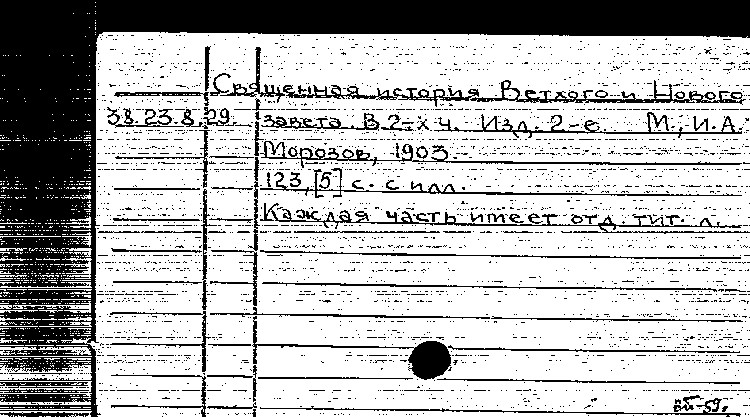 Священная история Ветхого и Нового
38.23.8.29. завета. В 2-х ч. Изд. 2-е. М., И.А.
Морозов, 1903.
123,[5] с. с илл.
Каждая часть имеет отд. тит. л.